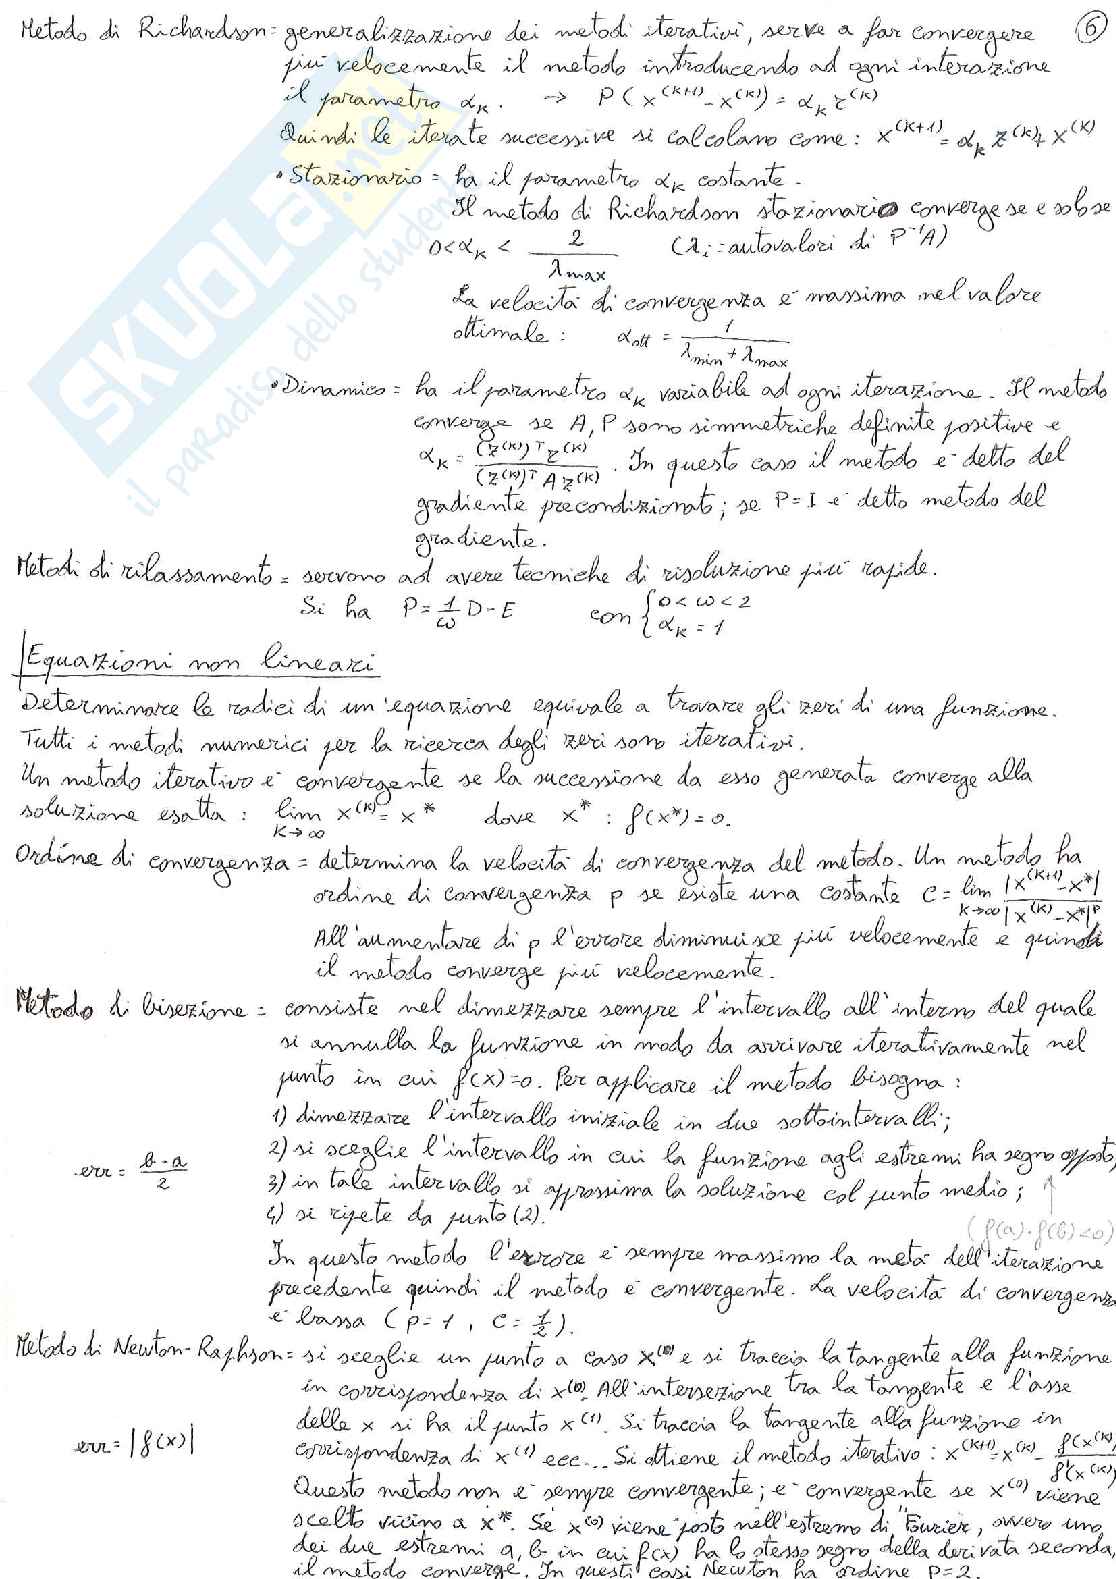 Metodo di Richardson = generalizzazione dei metodi iterativi, serve a far convergere
6
più velocemente il metodo introducendo ad ogni interazione
il parametro αₖ. → P(x⁽ᵏ⁺¹⁾ - x⁽ᵏ⁾) = αₖ r⁽ᵏ⁾
Quindi le iterate successive si calcolano come: x⁽ᵏ⁺¹⁾ = αₖ z⁽ᵏ⁾ + x⁽ᵏ⁾
• Stazionario = ha il parametro αₖ costante.
Il metodo di Richardson stazionario converge se e solo se
0 < αₖ < 2/λmax (λᵢ = autovalori di P⁻¹A)
La velocità di convergenza è massima nel valore
ottimale: αott = 1/(λmin + λmax)
• Dinamico = ha il parametro αₖ variabile ad ogni iterazione. Il metodo
converge se A, P sono simmetriche definite positive e
αₖ = (z⁽ᵏ⁾)ᵀ r⁽ᵏ⁾ / (z⁽ᵏ⁾)ᵀ A z⁽ᵏ⁾. In questo caso il metodo è detto del
gradiente precondizionato; se P=I è detto metodo del
gradiente.
Metodi di rilassamento = servono ad avere tecniche di risoluzione più rapide.
Si ha P = 1/ω D - E con { 0 < ω < 2
αₖ = 1
Equazioni non lineari
Determinare le radici di un'equazione equivale a trovare gli zeri di una funzione.
Tutti i metodi numerici per la ricerca degli zeri sono iterativi.
Un metodo iterativo è convergente se la successione da esso generata converge alla
soluzione esatta: lim K→∞ x⁽ᵏ⁾ = x* dove x* : f(x*) = 0.
Ordine di convergenza = determina la velocità di convergenza del metodo. Un metodo ha
ordine di convergenza p se esiste una costante C = lim K→∞ |x⁽ᵏ⁺¹⁾ - x*| / |x⁽ᵏ⁾ - x*|ᵖ
All'aumentare di p l'errore diminuisce più velocemente e quindi
il metodo converge più velocemente.
Metodo di bisezione = consiste nel dimezzare sempre l'intervallo all'interno del quale
si annulla la funzione in modo da arrivare iterativamente nel
punto in cui f(x)=0. Per applicare il metodo bisogna:
1) dimezzare l'intervallo iniziale in due sottointervalli;
2) si sceglie l'intervallo in cui la funzione agli estremi ha segno opposto;
err = (b-a)/2
3) in tale intervallo si approssima la soluzione col punto medio;
4) si ripete da punto (2).
(f(a)·f(b)<0)
In questo metodo l'errore è sempre massimo la metà dell'iterazione
precedente quindi il metodo è convergente. La velocità di convergenza
è bassa (p=1, C=1/2).
Metodo di Newton-Raphson = si sceglie un punto a caso x⁽⁰⁾ e si traccia la tangente alla funzione
in corrispondenza di x⁽⁰⁾. All'intersezione tra la tangente e l'asse
delle x si ha il punto x⁽¹⁾. Si traccia la tangente alla funzione in
err = |f(x)|
corrispondenza di x⁽¹⁾ ecc... Si ottiene il metodo iterativo: x⁽ᵏ⁺¹⁾ = x⁽ᵏ⁾ - f(x⁽ᵏ⁾)/f'(x⁽ᵏ⁾)
Questo metodo non è sempre convergente; è convergente se x⁽⁰⁾ viene
scelto vicino a x*. Se x⁽⁰⁾ viene posto nell'estremo di Fourier, ovvero uno
dei due estremi a, b in cui f(x) ha lo stesso segno della derivata seconda,
il metodo converge. In questi casi Newton ha ordine P=2.
SKUOLA.net
il paradiso dello studente